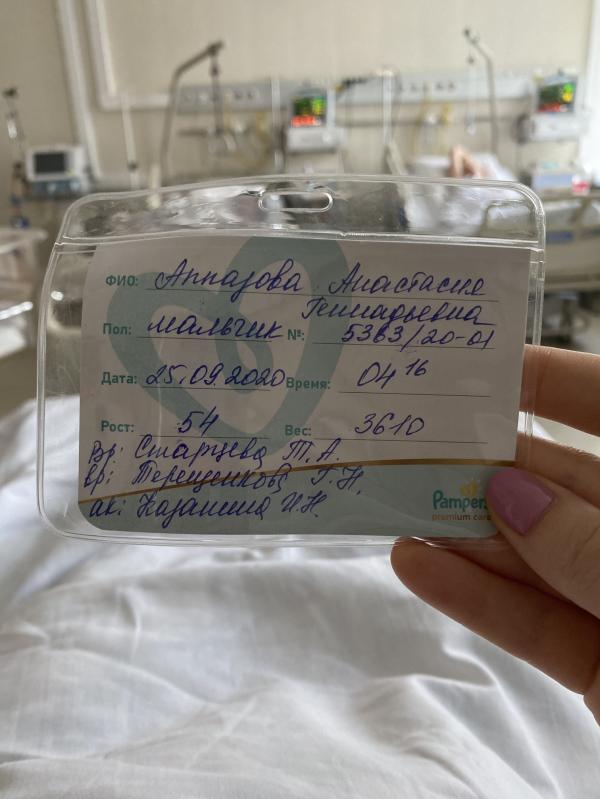 ФИО: Аппазова Анастасия
Геннадьевна
Пол: мальчик №: 5363/20-01
Дата: 25.09.2020 Время: 04 16
Рост: 54 Вес: 3610
Вр: Старцева Т. А.
Вр: Терещенкова Г. Н.
ак: Казанина И.Н.
Pampers
premium care